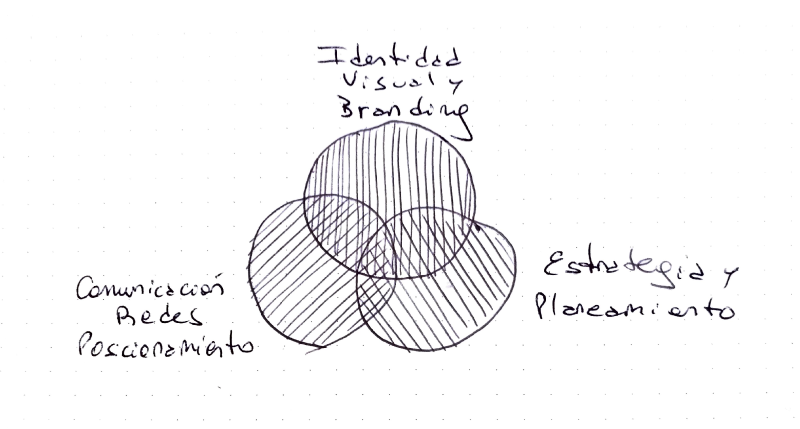 Identidad
Visual y
Branding
Estrategia y
Planeamiento
Comunicación
Redes
Poscionamiento